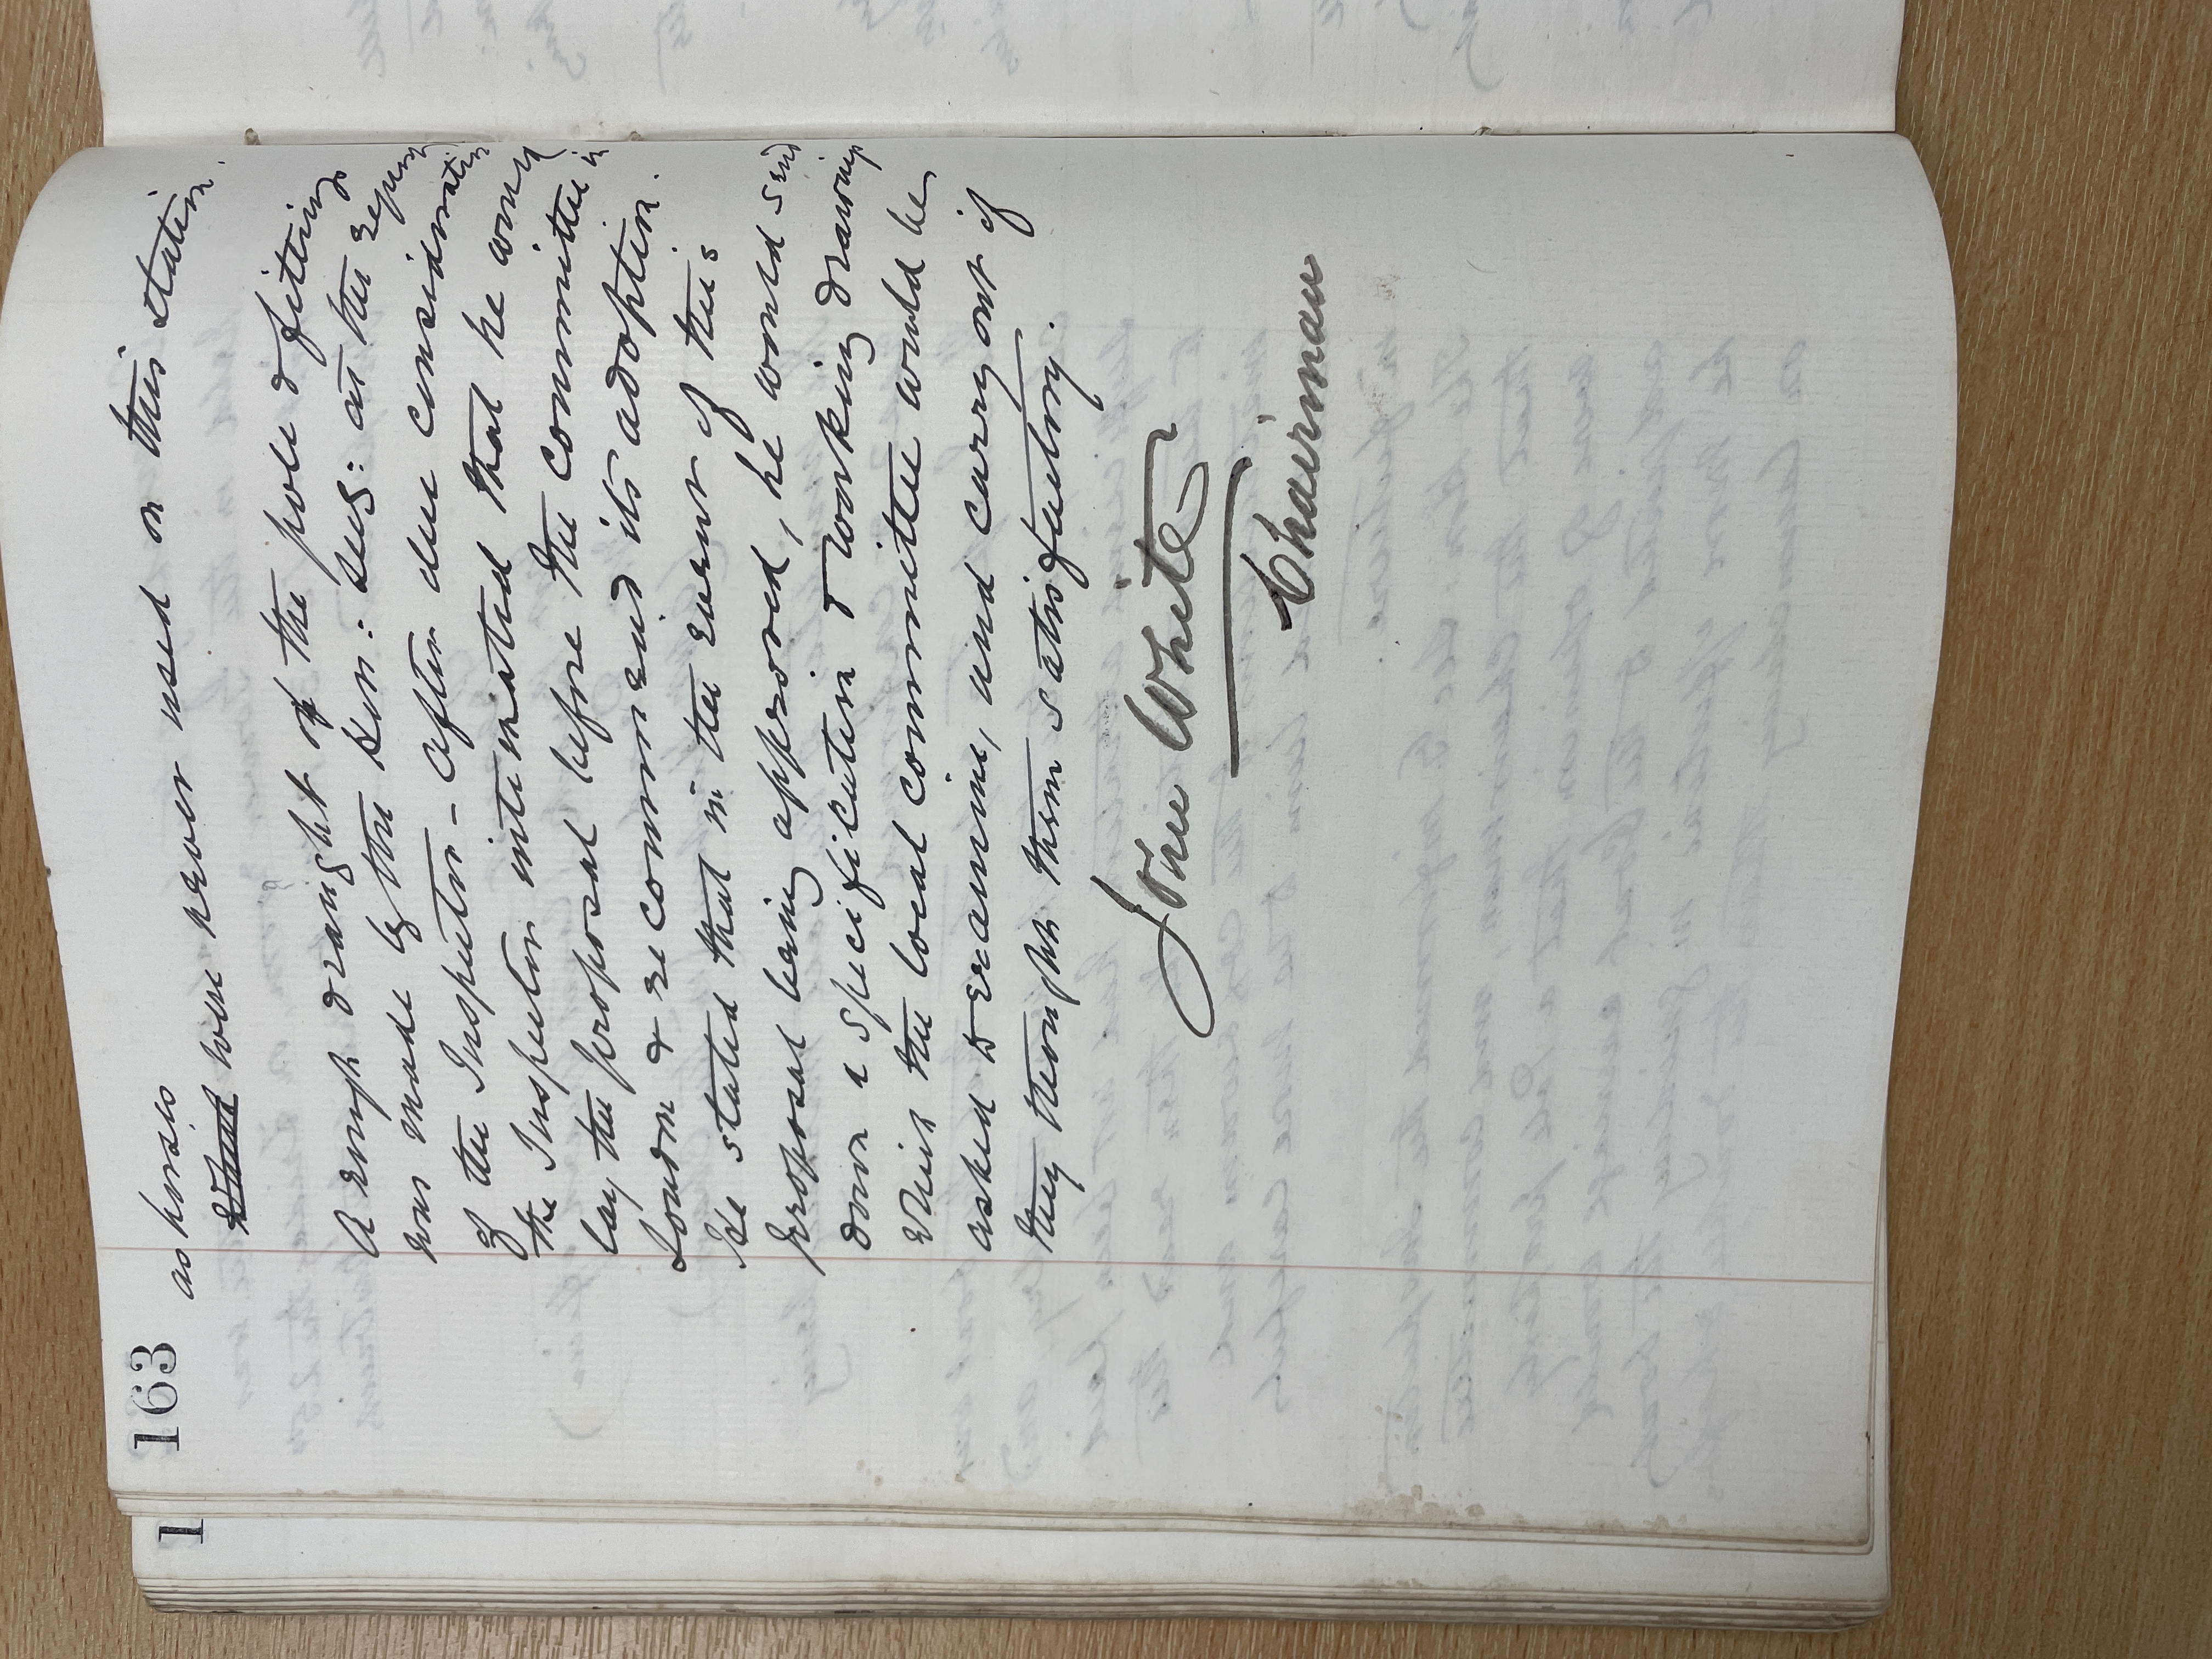 163
as horses
were never used on this station.
A rough draught of the pole & fitting
was made by the Hon: Sec: at the request
of the Inspector - after due consideration
the Inspector intimated that he would
lay the proposal before the Committee in
London & recommend its adoption.
He stated that in the event of this
proposal being approved, he would send
down a specification & working drawing
which the local committee would be
asked to examine, and carry out if
they thought them satisfactory.
John White
Chairman
1